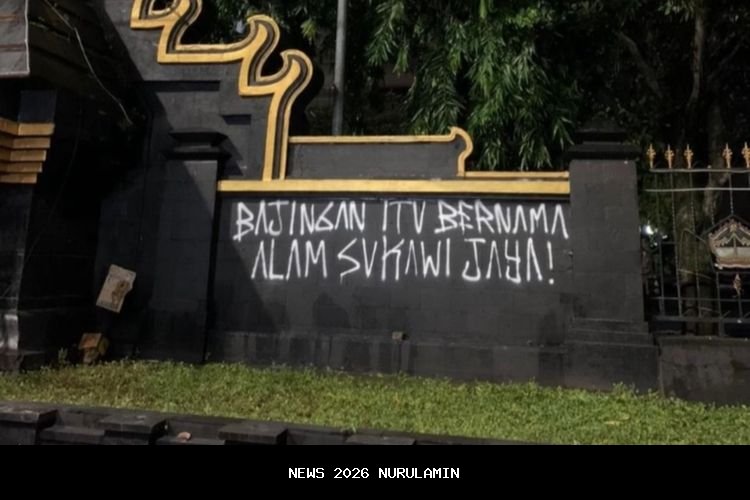 BAJINGAN ITU BERNAMA
ALAM SUKAWI JAYA!
NEWS 2026 NURULAMIN